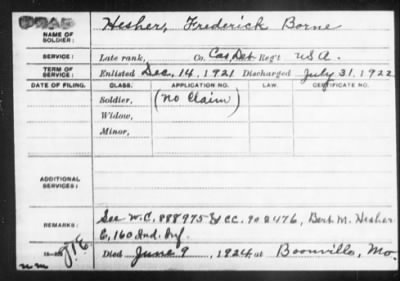 DEAD
Hesher, Frederick Borne
NAME OF SOLDIER:
SERVICE: Late rank, Co. Cas, Det Reg't USA.
TERM OF SERVICE: Enlisted Dec. 14, 1921 Discharged July 31, 1922
DATE OF FILING. CLASS. APPLICATION NO. LAW. CERTIFICATE NO.
Soldier, (No Claim)
Widow,
Minor,
ADDITIONAL SERVICES:
See W.C. 888975 & C.C. 902476, Bert. M. Hesher
REMARKS: E, 160 Ind. Inf.
J.I.E.
Died June 9, 1924 at Boonville, Mo.